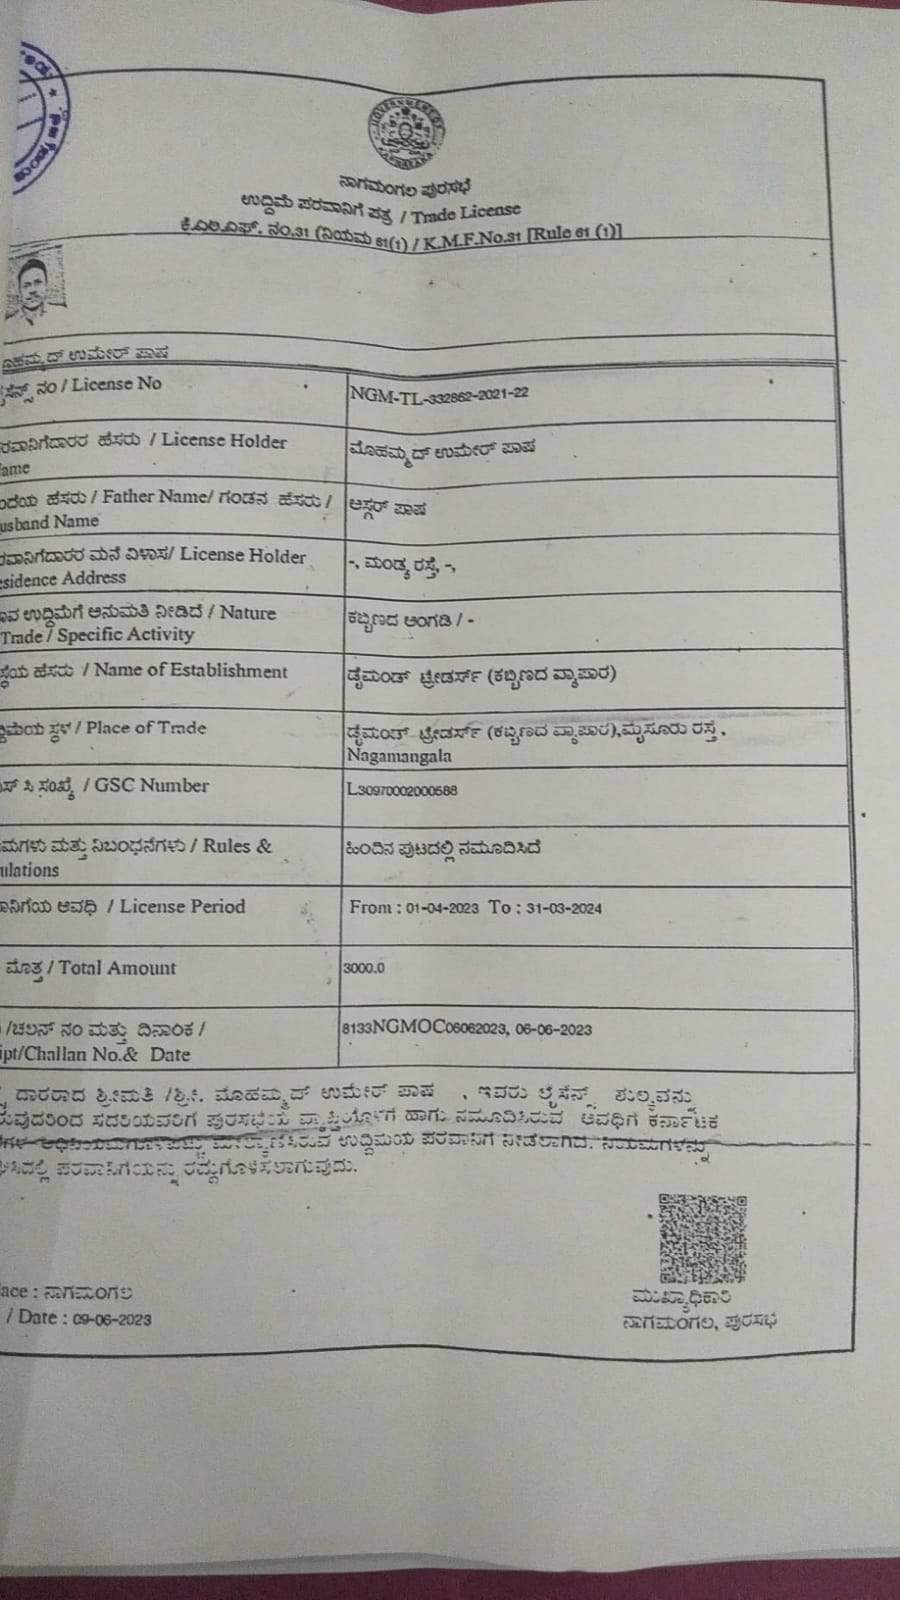 GOVERNMENT OF KARNATAKA
ನಾಗಮಂಗಲ ಪುರಸಭೆ
ಉದ್ದಿಮೆ ಪರವಾನಿಗೆ ಪತ್ರ / Trade License
ಕೆ.ಎಂ.ಎಫ್. ನಂ.31 (ನಿಯಮ 61(1) / K.M.F.No.31 [Rule 61 (1)]
ಉಮೇರ್ ಪಾಷ
ನಂ / License No
NGM-TL-332862-2021-22
ಹೆಸರು / License Holder
ಮೊಹಮ್ಮದ್ ಉಮೇರ್ ಪಾಷ
ಹೆಸರು / Father Name/ ಗಂಡನ ಹೆಸರು /
Name
ಅಸ್ಗರ್ ಪಾಷ
ಮನೆ ವಿಳಾಸ/ License Holder
Address
-, ಮಂಡ್ಯ ರಸ್ತೆ, -,
ಉದ್ದಿಮೆಗೆ ಅನುಮತಿ ನೀಡಿದೆ / Nature
Trade / Specific Activity
ಕಬ್ಬಿಣದ ಅಂಗಡಿ / -
ಹೆಸರು / Name of Establishment
ಡೈಮಂಡ್ ಟ್ರೇಡರ್ಸ್ (ಕಬ್ಬಿಣದ ವ್ಯಾಪಾರ)
ಸ್ಥಳ / Place of Trade
ಡೈಮಂಡ್ ಟ್ರೇಡರ್ಸ್ (ಕಬ್ಬಿಣದ ವ್ಯಾಪಾರ),ಮೈಸೂರು ರಸ್ತೆ,
Nagamangala
ಸಿ ಸಂಖ್ಯೆ / GSC Number
L30970002000588
ಮತ್ತು ನಿಬಂಧನೆಗಳು / Rules &
ಹಿಂದಿನ ಪುಟದಲ್ಲಿ ನಮೂದಿಸಿದೆ
ಅವಧಿ / License Period
From : 01-04-2023 To : 31-03-2024
ಮೊತ್ತ / Total Amount
3000.0
/ಚಲನ್ ನಂ ಮತ್ತು ದಿನಾಂಕ /
No.& Date
8133NGMOC06062023, 06-06-2023
ದಾರರಾದ ಶ್ರೀಮತಿ /ಶ್ರೀ. ಮೊಹಮ್ಮದ್ ಉಮೇರ್ ಪಾಷ , ಇವರು ಲೈಸೆನ್ಸ್ ಶುಲ್ಕವನ್ನು
ಸದರಿಯವರಿಗೆ ಪುರಸಭೆಯ ವ್ಯಾಪ್ತಿಯೊಳಗೆ ಹಾಗು ನಮೂದಿಸಿರುವ ಅವಧಿಗೆ ಕರ್ನಾಟಕ
ಉದ್ದಿಮೆಯ ಪರವಾನಿಗೆ ನೀಡಲಾಗಿದೆ. ನಿಯಮಗಳನ್ನು
ಪರವಾನಿಗೆಯನ್ನು ರದ್ದುಗೊಳಿಸಲಾಗುವುದು.
: ನಾಗಮಂಗಲ
/ Date : 09-06-2023
ಮುಖ್ಯಾಧಿಕಾರಿ
ನಾಗಮಂಗಲ, ಪುರಸಭೆ